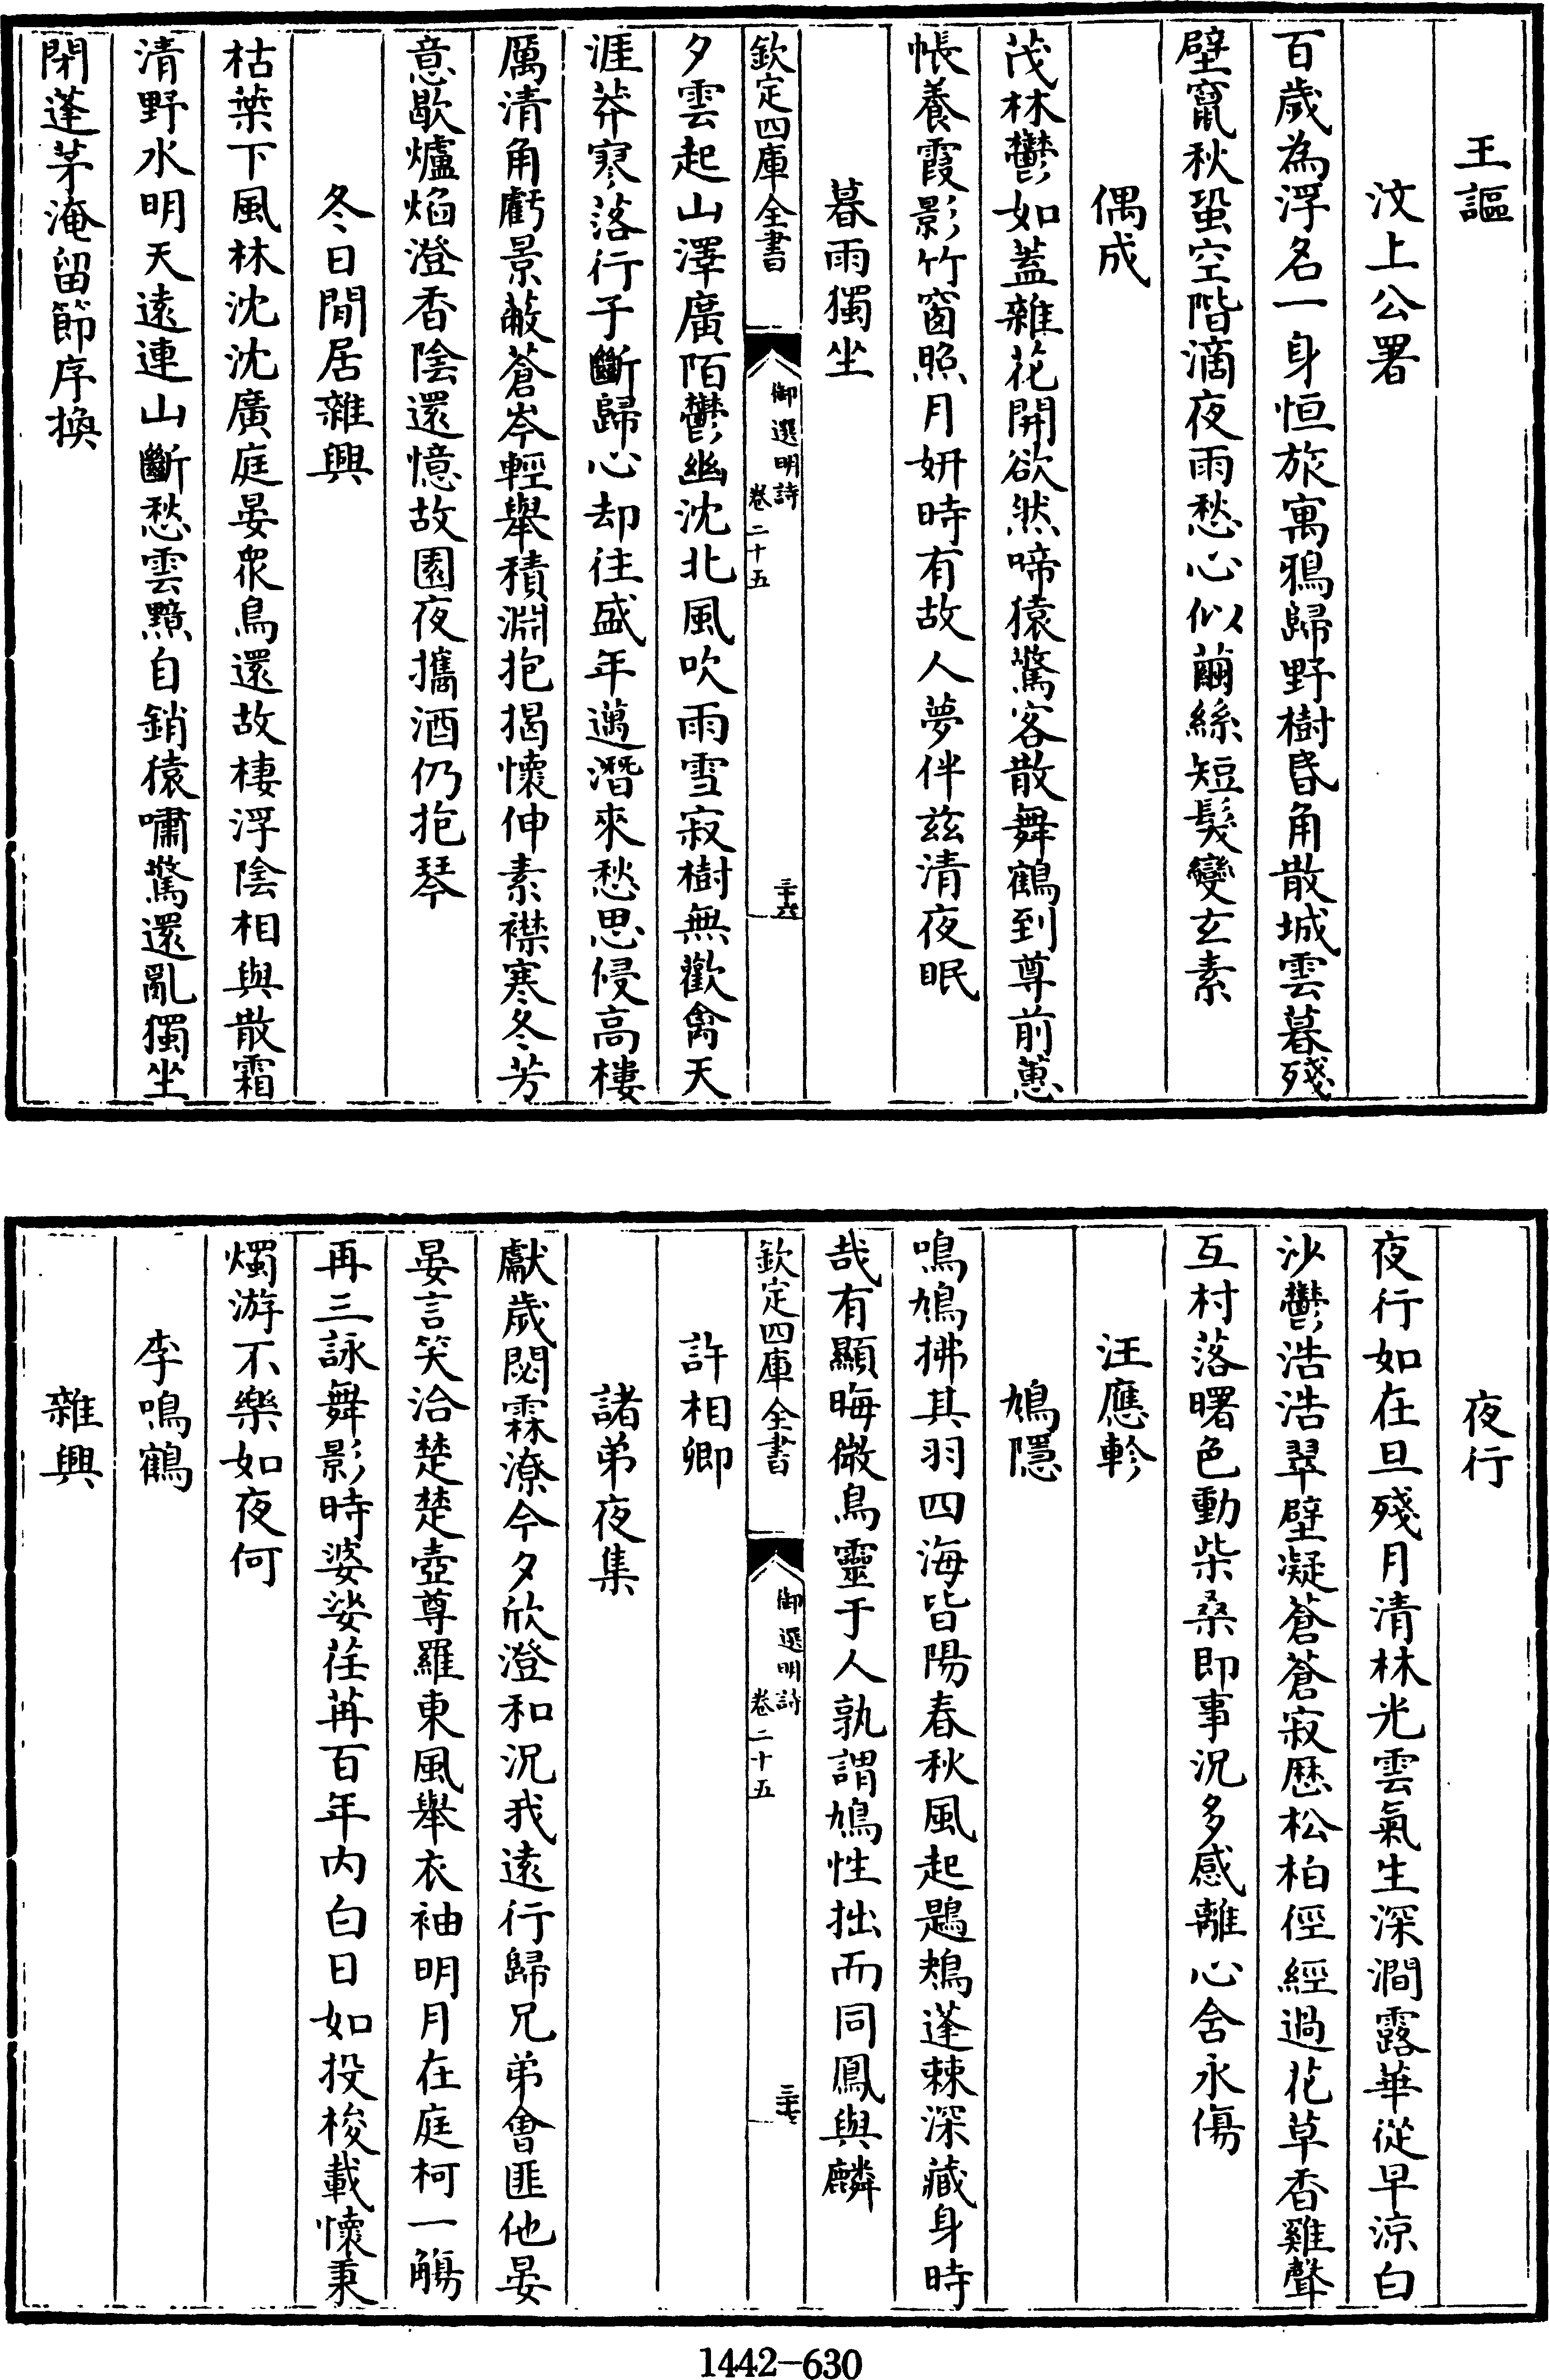 王謳
汶上公署
百歲為浮名一身恒旅寓鴉歸野樹昏角散城雲暮殘
壁竄秋蛩空階滴夜雨愁心似繭絲短髮變玄素
偶成
茂林鬱如蓋雜花開欲然啼猿驚客散舞鶴到尊前蕙
帳養霞影竹窗照月妍時有故人夢伴兹清夜眠
暮雨獨坐
欽定四庫全書
御選明詩
卷二十五
三十六
夕雲起山澤廣陌鬱幽沈北風吹雨雪寂樹無歡禽天
涯莽寥落行子斷歸心却往盛年邁潛來愁思侵高樓
厲清角虧景蔽蒼岑輕舉積淵抱揭懷伸素襟寒冬芳
意歇爐焰澄香陰還憶故園夜攜酒仍抱琴
冬日閒居雜興
枯葉下風林沈沈廣庭晏衆鳥還故棲浮陰相與散霜
清野水明天遠連山斷愁雲黯自銷猿嘯驚還亂獨坐
閉蓬茅淹留節序換
夜行
夜行如在旦殘月清林光雲氣生深澗露華從早涼白
沙鬱浩浩翠壁凝蒼蒼寂歷松柏徑經過花草香雞聲
互村落曙色動柴桑即事況多感離心舍永傷
汪應軫
鳩隱
鳴鳩拂其羽四海皆陽春秋風起鶗鴂蓬棘深藏身時
哉有顯晦微鳥靈于人孰謂鳩性拙而同鳳與麟
欽定四庫全書
御選明詩
卷二十五
三十七
許相卿
諸弟夜集
獻歲閟霖潦今夕欣澄和況我遠行歸兄弟會匪他晏
晏言笑洽楚楚壺尊羅東風舉衣袖明月在庭柯一觴
再三詠舞影時婆娑荏苒百年内白日如投梭載懷秉
燭游不樂如夜何
李鳴鶴
雜興
1442-630